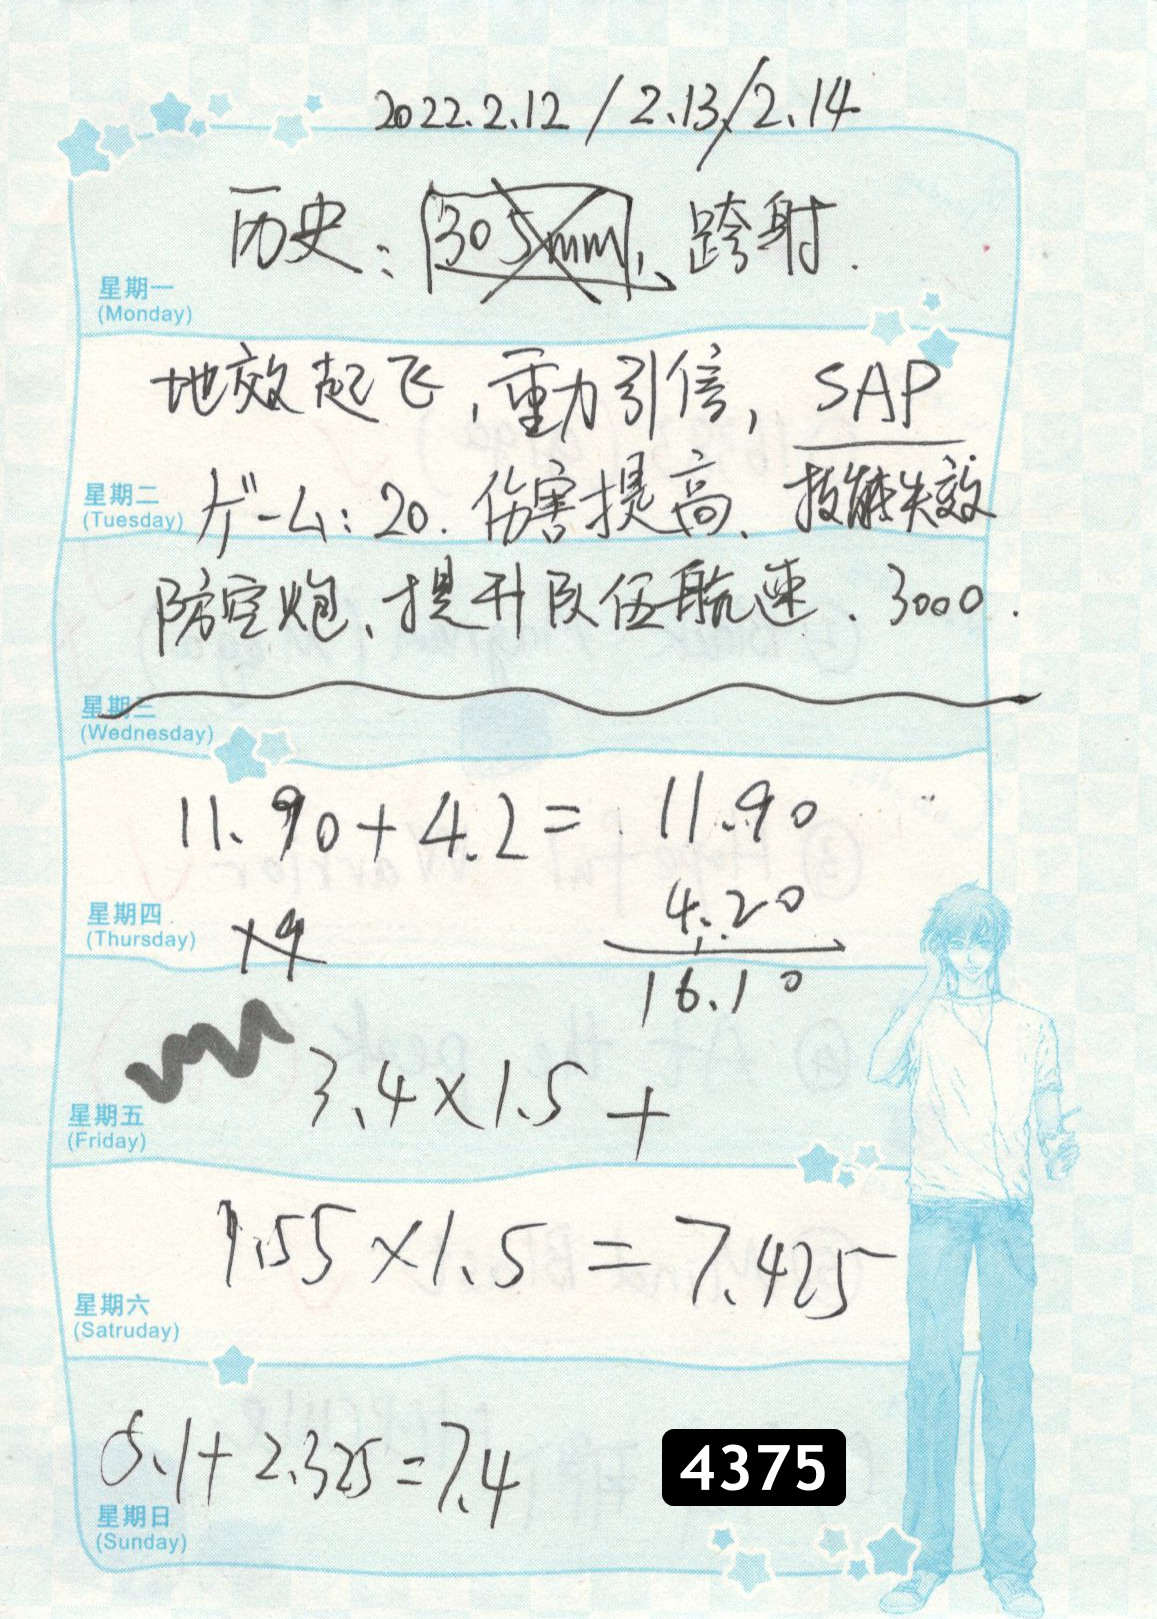 2022.2.12 / 2.13 / 2.14
历史：305mm、跨射.
星期一
(Monday)
地效起飞，重力引信，SAP
星期二
(Tuesday)
ゲーム：20. 伤害提高、技能失效
防空炮、提升队伍航速、3000.
星期三
(Wednesday)
11.90+4.2= 11.90
4.20
星期四
(Thursday)
×4
16.10
3.4×1.5+
星期五
(Friday)
1.55×1.5=7.425
星期六
(Satruday)
5.1+2.325=7.4
4375
星期日
(Sunday)